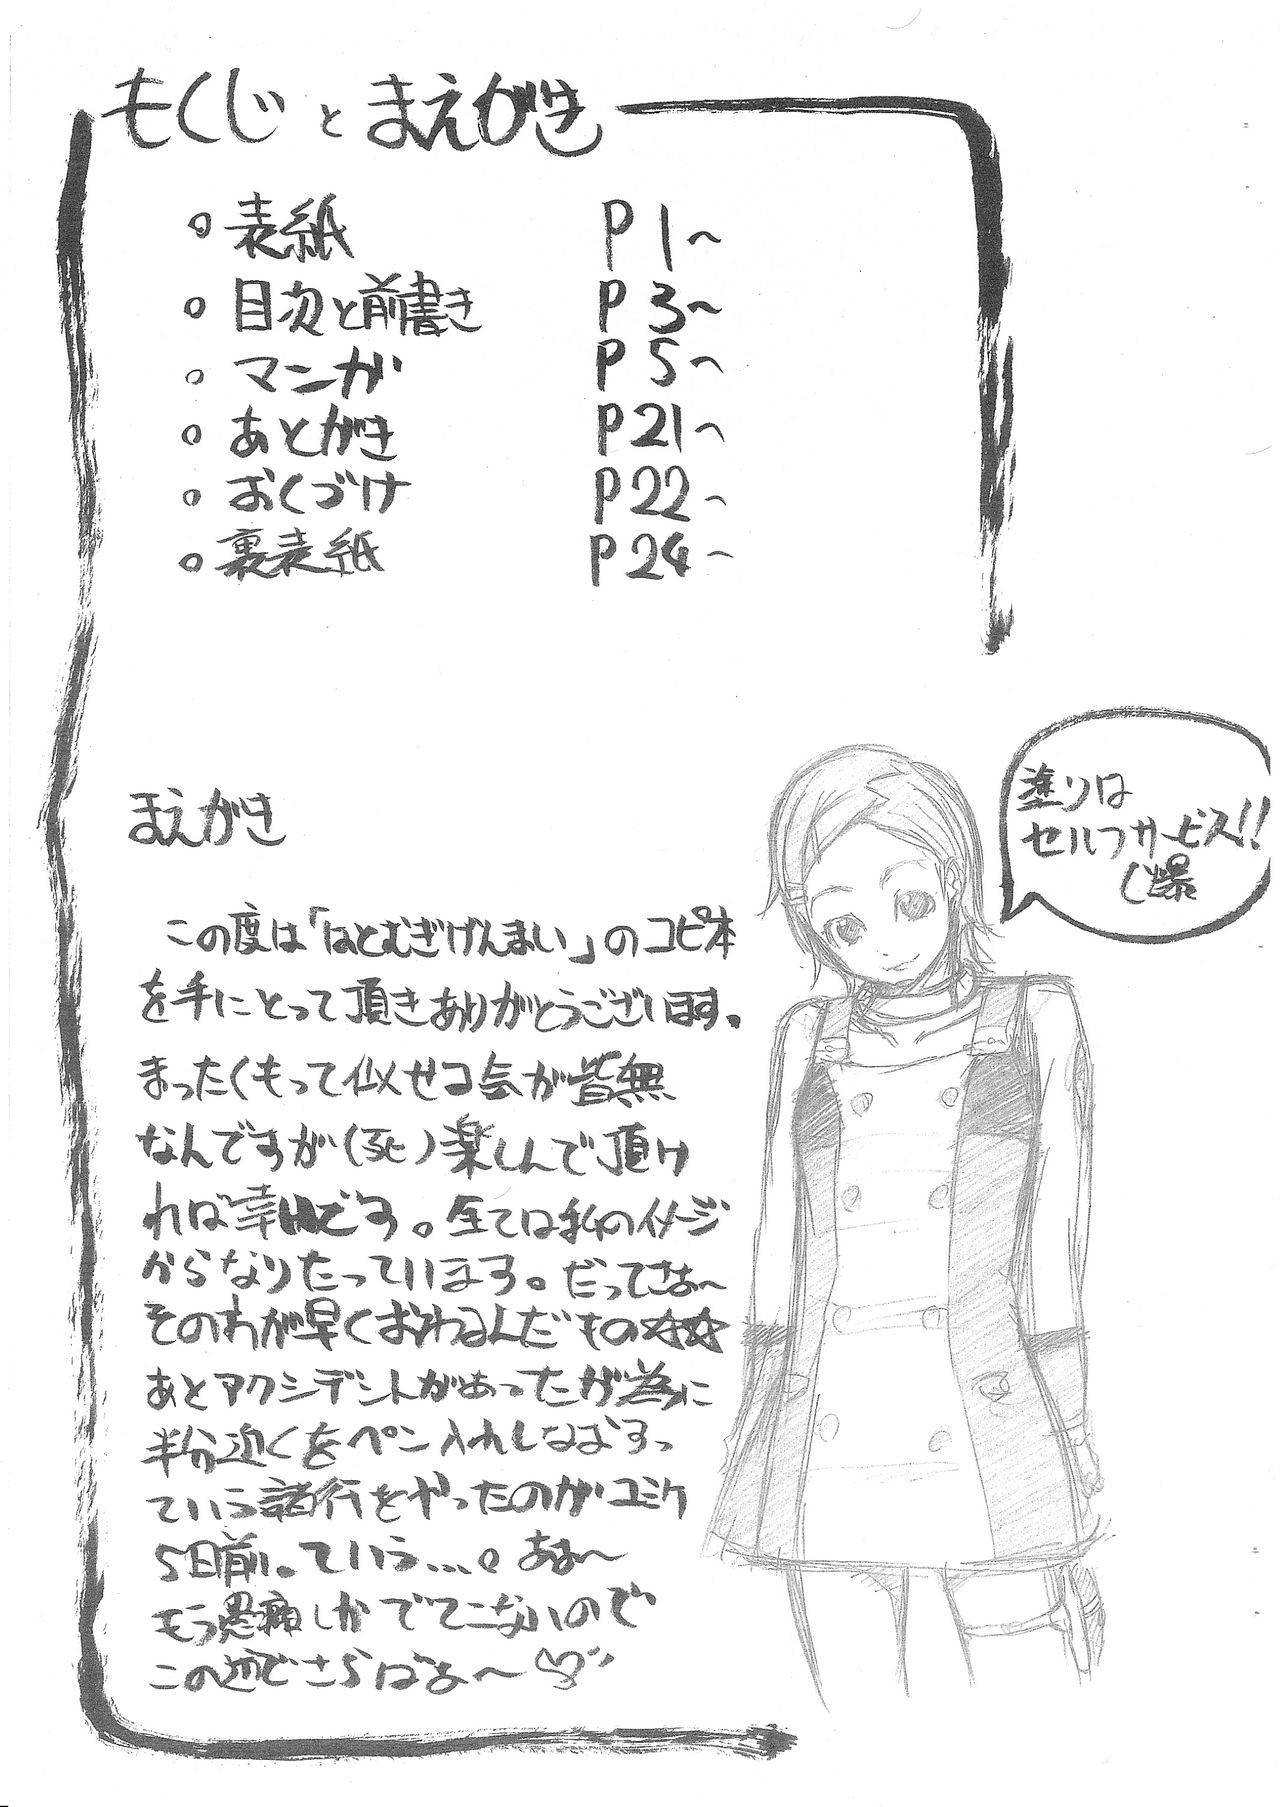 もくじとまえがき
○表紙 P1~
○目次と前書き P3~
○マンガ P5~
○あとがき P21~
○おくづけ P22~
○裏表紙 P24~
塗りは
セルフサービス!!
(爆
まえがき
この度は「はとむぎげんまい」のコピ本
を手にとって頂きありがとうございます。
まったくもって似せる気が皆無
なんですが(死)楽しんで頂け
れば幸いです。全ては私のイメージ
からなりたっています。だってさぁ~
そのわが早くおわるんだもの☆☆
あとアクシデントがあったが為に
半分近くをペン入れしなおすっ
ていう諸行をやったのがコミケ
5日前。ていう…。あぁ~
もう愚痴しかでてこないので
この辺でさらばぁ~